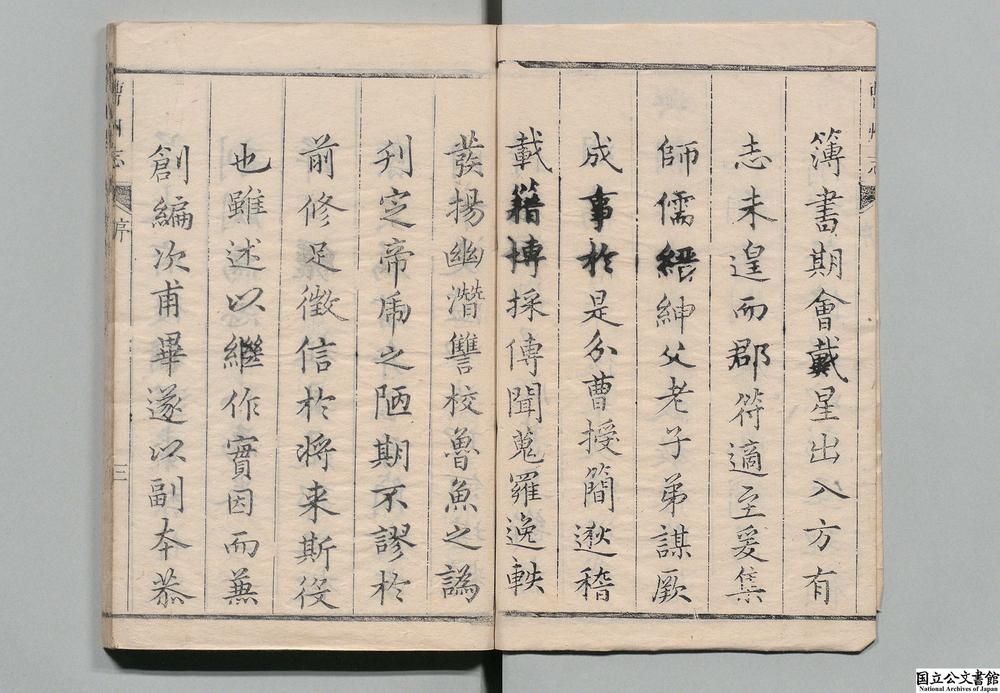 簿書期會戴星出入方有
志未遑而郡符適至爰集
師儒縉紳父老子弟謀厥
成事於是分曹授簡遡稽
載籍博採傳聞蒐羅逸軼
發揚幽潛讐校魯魚之譌
刋定帝虎之陋期不謬於
前修足徵信於将来斯役
也雖述以繼作實因而蕪
創編次甫畢遂以副夲恭
曹州志
序
三
国立公文書館
National Archives of Japan